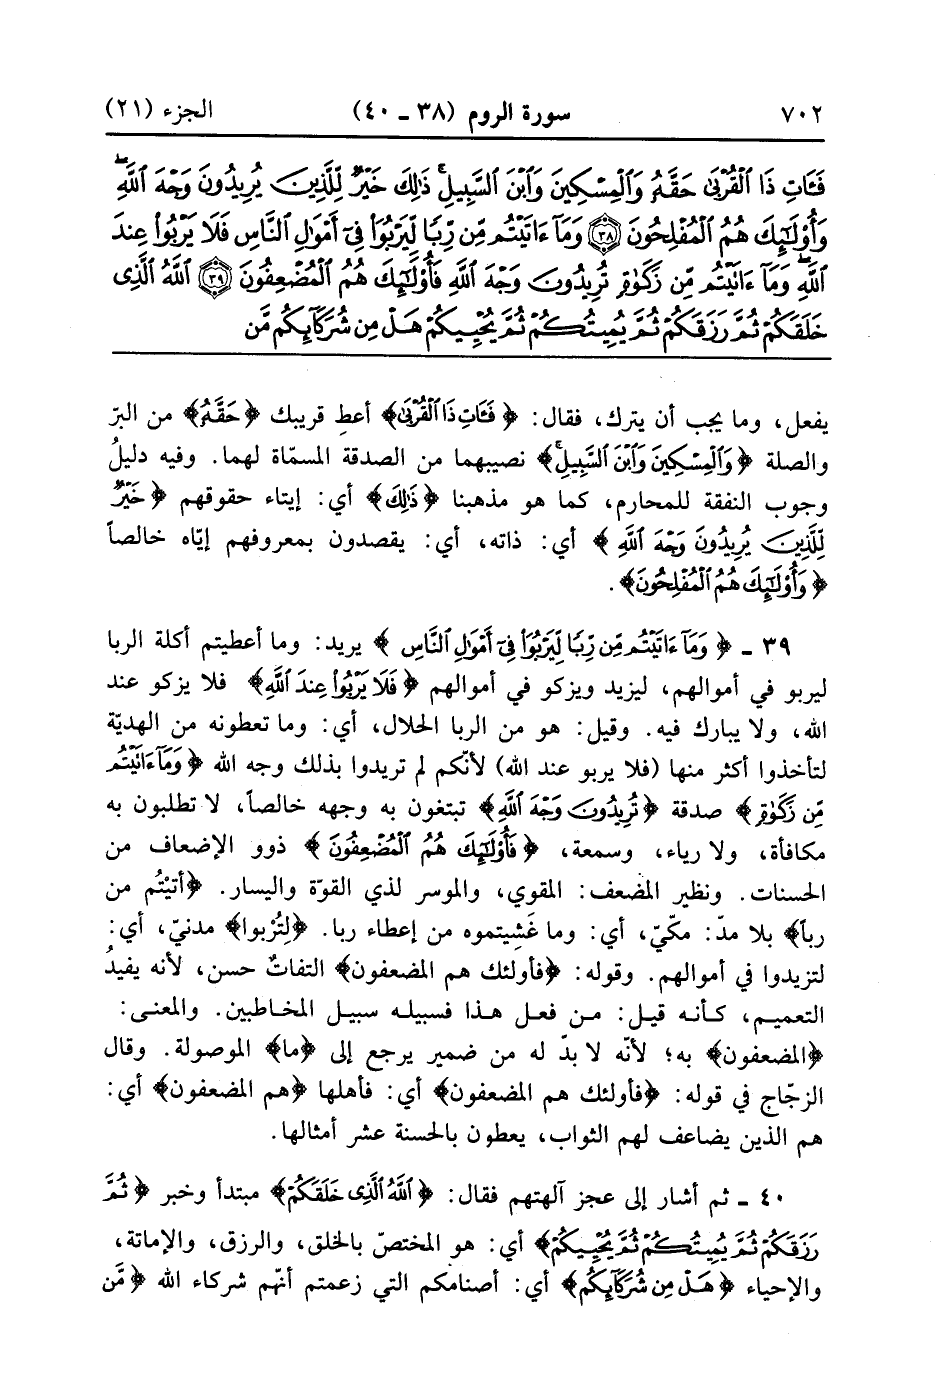 ٧٠٢ سورة الروم (٣٨ ـ ٤٠) الجزء (٢١)
فَـَٔاتِ ذَا ٱلْقُرْبَىٰ حَقَّهُۥ وَٱلْمِسْكِينَ وَٱبْنَ ٱلسَّبِيلِ ۚ ذَٰلِكَ خَيْرٌ لِّلَّذِينَ يُرِيدُونَ وَجْهَ ٱللَّهِ ۖ
وَأُو۟لَـٰٓئِكَ هُمُ ٱلْمُفْلِحُونَ ٣٨ وَمَآ ءَاتَيْتُم مِّن رِّبًا لِّيَرْبُوَا۟ فِىٓ أَمْوَٰلِ ٱلنَّاسِ فَلَا يَرْبُوا۟ عِندَ
ٱللَّهِ ۖ وَمَآ ءَاتَيْتُم مِّن زَكَوٰةٍ تُرِيدُونَ وَجْهَ ٱللَّهِ فَأُو۟لَـٰٓئِكَ هُمُ ٱلْمُضْعِفُونَ ٣٩ ٱللَّهُ ٱلَّذِى
خَلَقَكُمْ ثُمَّ رَزَقَكُمْ ثُمَّ يُمِيتُكُمْ ثُمَّ يُحْيِيكُمْ هَلْ مِن شُرَكَآئِكُم مَّن
يفعل، وما يجب أن يترك، فقال: ﴿فَـَٔاتِ ذَا ٱلْقُرْبَىٰ﴾ أعطِ قريبك ﴿حَقَّهُۥ﴾ من البرّ
والصلة ﴿وَٱلْمِسْكِينَ وَٱبْنَ ٱلسَّبِيلِ ۚ﴾ نصيبهما من الصدقة المسمّاة لهما. وفيه دليلُ
وجوب النفقة للمحارم، كما هو مذهبنا ﴿ذَٰلِكَ﴾ أي: إيتاء حقوقهم ﴿خَيْرٌ
لِّلَّذِينَ يُرِيدُونَ وَجْهَ ٱللَّهِ﴾ أي: ذاته، أي: يقصدون بمعروفهم إيّاه خالصاً
﴿وَأُو۟لَـٰٓئِكَ هُمُ ٱلْمُفْلِحُونَ﴾.
٣٩ ـ ﴿وَمَآ ءَاتَيْتُم مِّن رِّبًا لِّيَرْبُوَا۟ فِىٓ أَمْوَٰلِ ٱلنَّاسِ﴾ يريد: وما أعطيتم أكلة الربا
ليربو في أموالهم، ليزيد ويزكو في أموالهم ﴿فَلَا يَرْبُوا۟ عِندَ ٱللَّهِ﴾ فلا يزكو عند
الله، ولا يبارك فيه. وقيل: هو من الربا الحلال، أي: وما تعطونه من الهديّة
لتأخذوا أكثر منها (فلا يربو عند الله) لأنّكم لم تريدوا بذلك وجه الله ﴿وَمَآ ءَاتَيْتُم
مِّن زَكَوٰةٍ﴾ صدقة ﴿تُرِيدُونَ وَجْهَ ٱللَّهِ﴾ تبتغون به وجهه خالصاً، لا تطلبون به
مكافأة، ولا رياء، وسمعة، ﴿فَأُو۟لَـٰٓئِكَ هُمُ ٱلْمُضْعِفُونَ﴾ ذوو الإضعاف من
الحسنات. ونظير المضعف: المقوي، والموسر لذي القوّة واليسار. ﴿أَتيْتُم من
رباً﴾ بلا مدّ: مكّيّ، أي: وما غَشِيتموه من إعطاء ربا. ﴿لِتُرْبوا﴾ مدنيّ، أي:
لتزيدوا في أموالهم. وقوله: ﴿فأولئك هم المضعفون﴾ التفاتٌ حسن، لأنه يفيدُ
التعميم، كأنه قيل: من فعل هذا فسبيله سبيل المخاطبين. والمعنى:
﴿المضعفون﴾ به؛ لأنّه لا بدّ له من ضمير يرجع إلى ﴿ما﴾ الموصولة. وقال
الزجّاج في قوله: ﴿فأولئك هم المضعفون﴾ أي: فأهلها ﴿هم المضعفون﴾ أي:
هم الذين يضاعف لهم الثواب، يعطون بالحسنة عشر أمثالها.
٤٠ ـ ثم أشار إلى عجز آلهتهم فقال: ﴿ٱللَّهُ ٱلَّذِى خَلَقَكُمْ﴾ مبتدأ وخبر ﴿ثُمَّ
رَزَقَكُمْ ثُمَّ يُمِيتُكُمْ ثُمَّ يُحْيِيكُمْ﴾ أي: هو المختصّ بالخلق، والرزق، والإماتة،
والإحياء ﴿هَلْ مِن شُرَكَآئِكُم﴾ أي: أصنامكم التي زعمتم أنّهم شركاء الله ﴿مَّن